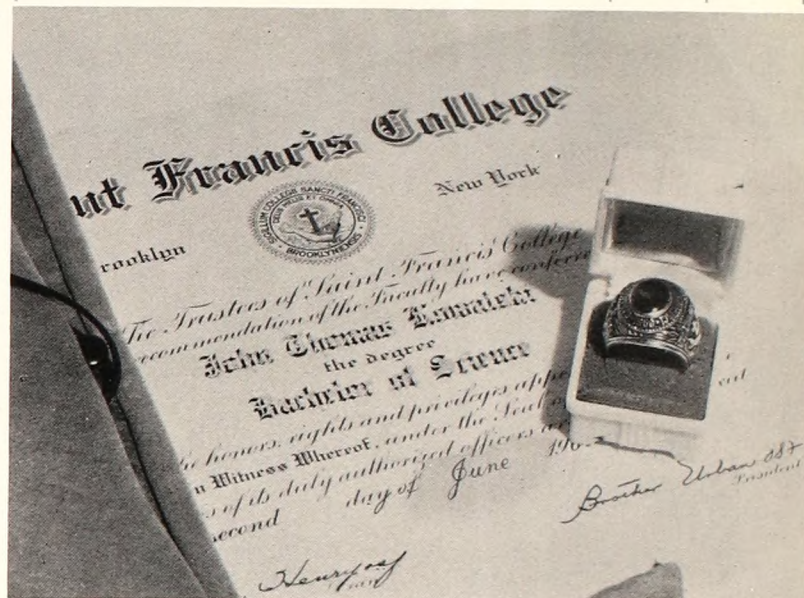 nt Francis College
rooklyn
New York
SIGILLUM COLLEGII SANCTI FRANCISCI
DEUS MEUS ET OMNIA
BROOKLYNIENSIS
The Trustees of Saint Francis College
ecommendation of the Faculty have conferre
John Thomas
the degree
Bachelor of Science
he honors, rights and privileges appe
n Witness Whereof, under the Seal
s of its duly authorized officers
econd day of June 196
Brother Urban OSF
President
Henry osf